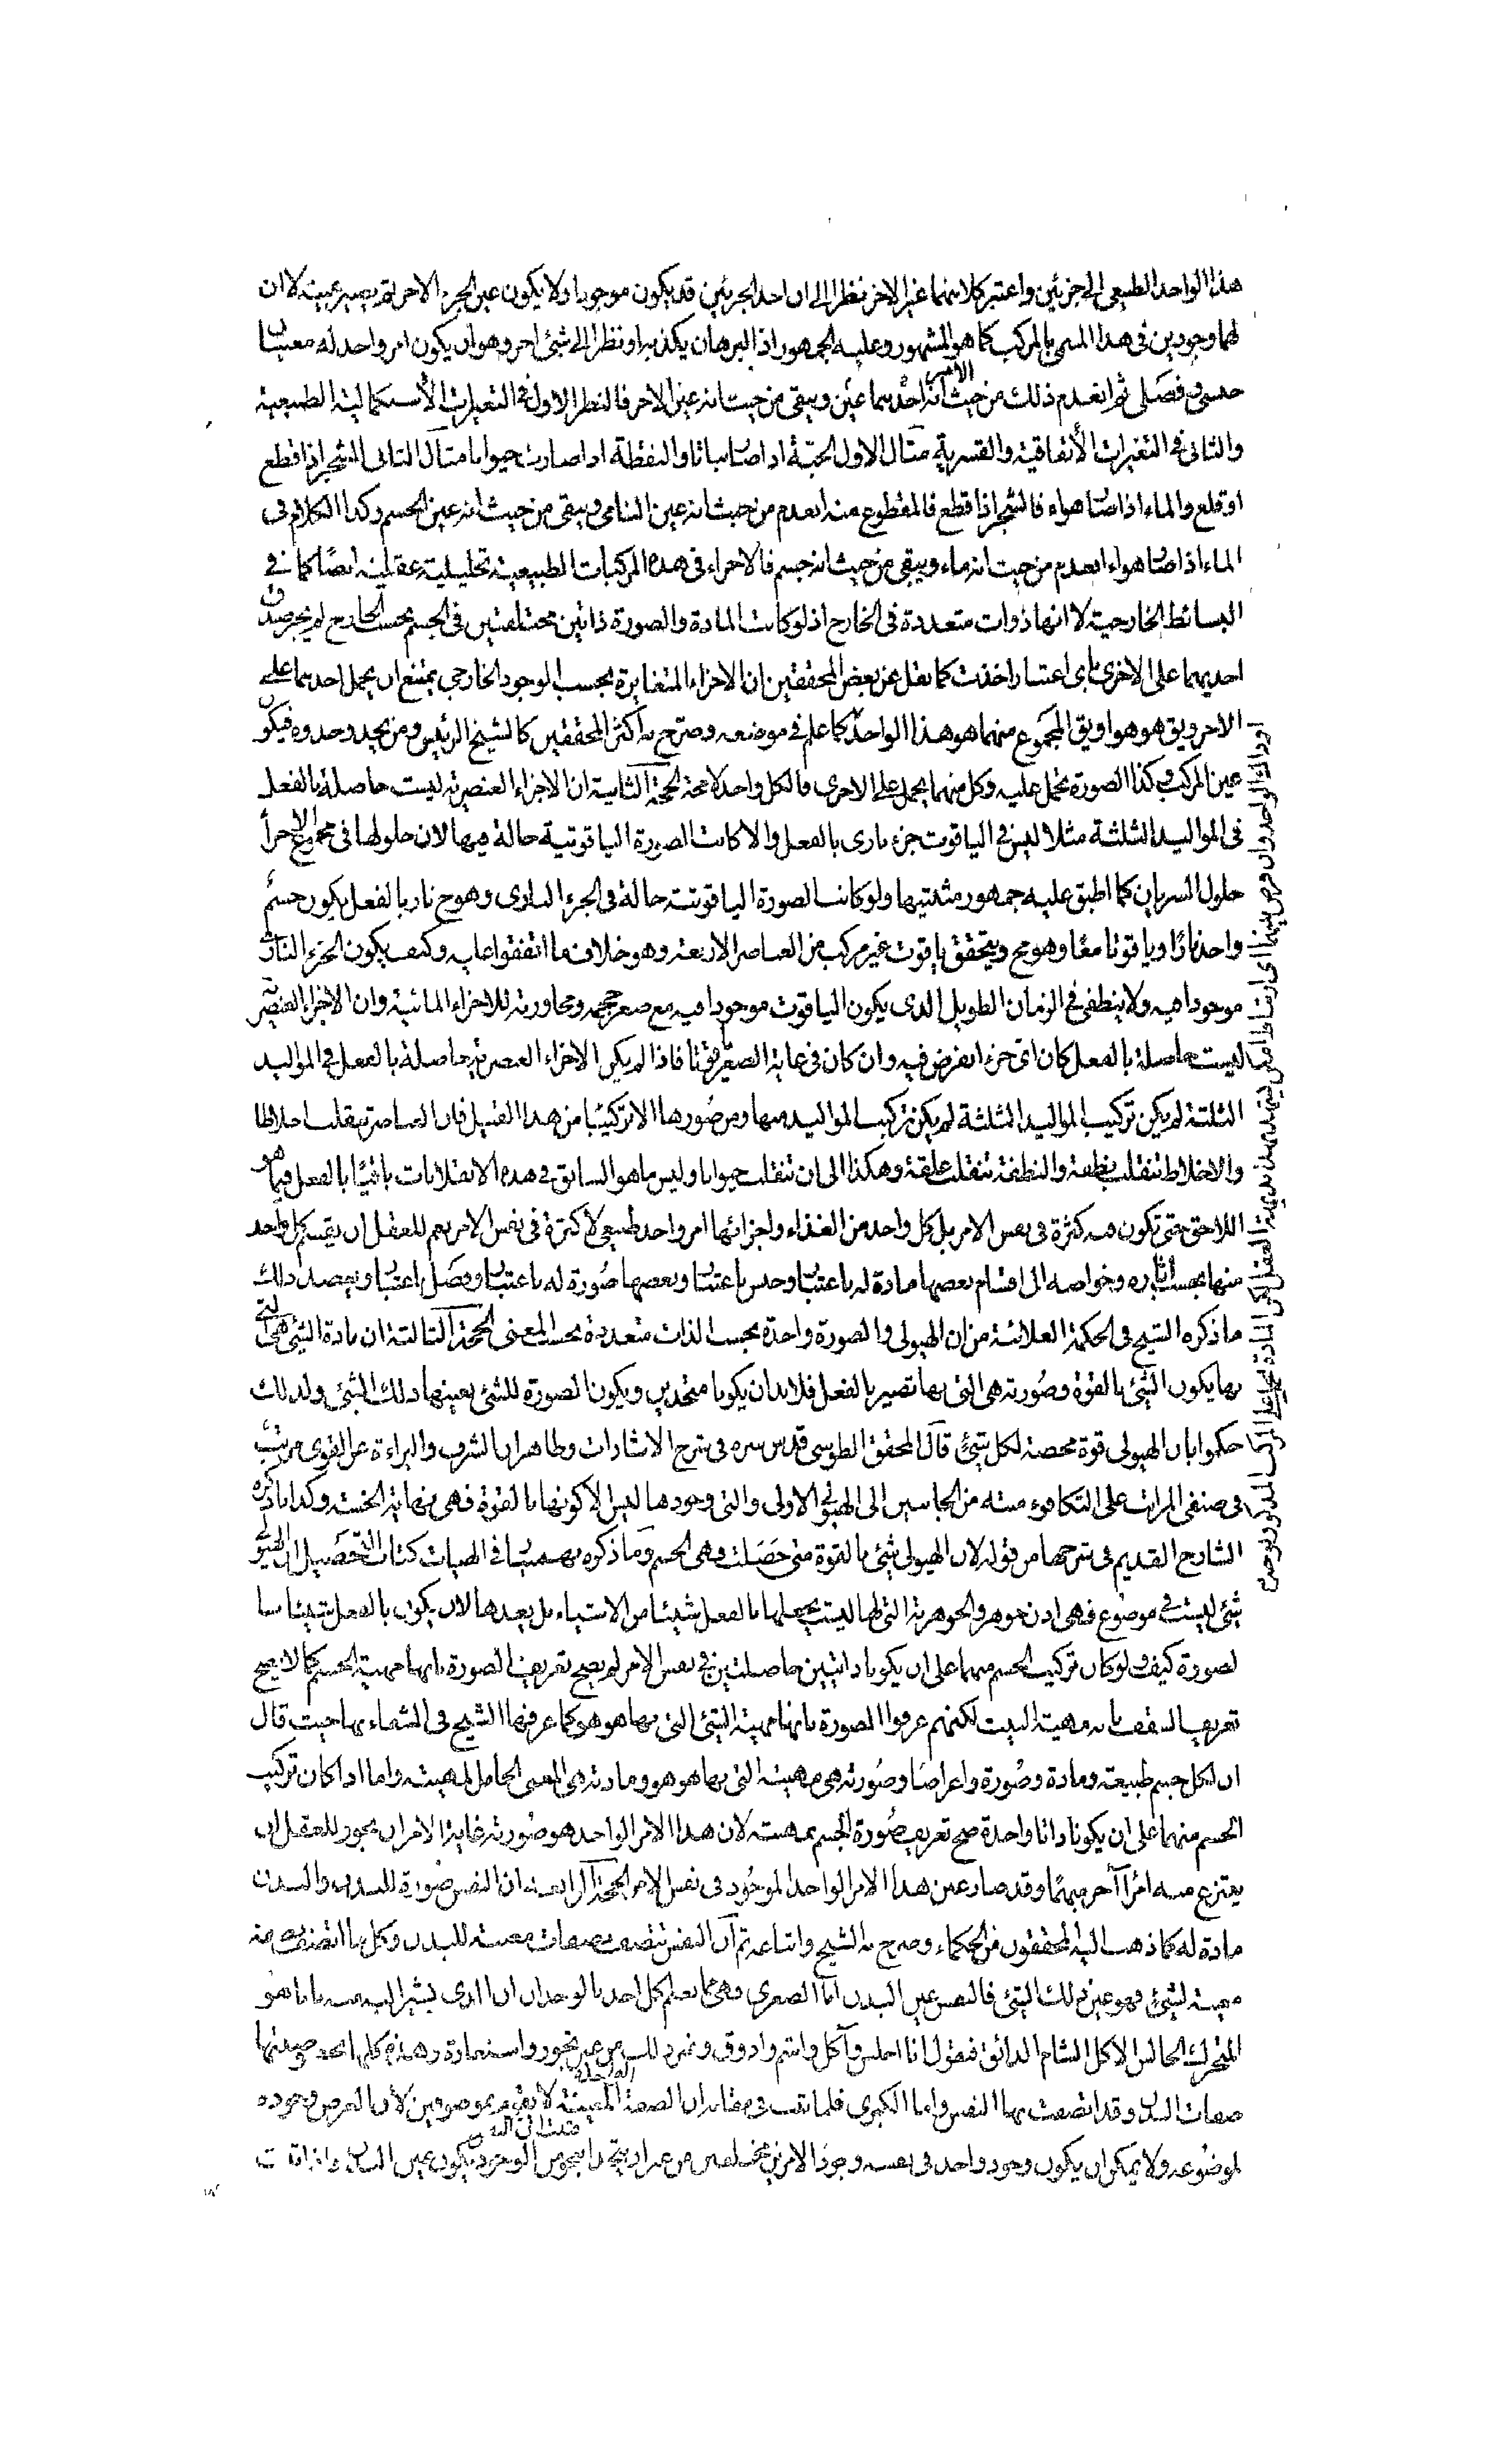 هذا الواحد الطبيعى الى جزئين واعتبر كلا منهما غير الاخر نظرا الى ان احد الجزئين قد يكون موجودا ولا يكون عين الجزء الاخر ثم يصير عينه لا ان
لهما وجودين فى هذا المسمى بالمركب كما هو المشهور وعليه الجمهور اذ البرهان يكذبه او نظرا الى شئ اخر وهو ان يكون امر واحد له معنيان
جنسى وفصلى ثم انعدم ذلك الامر من حيث انه احدهما عين ويبقى من حيث انه عين الاخر فالنظر الاول فى التغيرات الاستكمالية الطبيعية
والثانى فى التغيرات الاتفاقية والقسرية مثال الاول الحبة اذا صار نباتا والنطفة اذا صارت حيوانا مثال الثانى الشجر اذا قطع
او قلع والماء اذا صار هواء فالشجر اذا قطع فالمقطوع منه انعدم من حيث انه عين النامى ويبقى من حيث انه عين الجسم وكذا الكلام فى
الماء اذا صار هواء انعدم من حيث انه ماء ويبقى من حيث انه جسم فالاجزاء فى هذه المركبات الطبيعية تحليلية عقلية ايضا كما فى
البسائط الخارجية لا انها ذوات متعددة فى الخارج اذ لو كانت المادة والصورة ذاتين مختلفتين فى الجسم بحسب الخارج لم يجز صدق
احديهما على الاخرى باى اعتبار اخذت كما نقل عن بعض المحققين ان الاجزاء المتغايرة بحسب الوجود الخارجى يمتنع ان يحمل احدهما على
الاخر ويق هو هو او يق المجموع منهما هو هذا الواحد كما علم فى موضعه وصرح به اكثر المحققين كالشيخ الرئيس ومن يحذو حذوه فيكون
عين المركب وكذا الصورة تحمل عليه وكل منهما يحمل على الاخرى فالكل واحد لا محة الحجة الثانية ان الاجزاء العنصرية ليست حاصلة بالفعل
فى المواليد الثلثة مثلا ليس فى الياقوت جزء نارى بالفعل والا كانت الصورة الياقوتية حالة فيها لان حلولها فى مجموع الاجزاء
حلول السريان كما اطبق عليه جمهور مثبتيها ولو كانت الصورة الياقوتية حالة فى الجزء النارى وهو ح نار بالفعل يكون جسم
واحد نارا وياقوتا معا وهو مح ويتحقق ياقوت غير مركب من العناصر الاربعة وهو خلاف ما اتفقوا عليه وكيف يكون الجزء النارى
موجودا فيه ولا ينطفى فى الزمان الطويل الذى يكون الياقوت موجودا فيه مع صغر حجمه ومجاورته للاجزاء المائية وان الاجزاء العنصرية
ليست حاصلة بالفعل كان اى جزء انفرض فيه وان كان فى غاية الصغر ياقوتا فاذا لم يكن الاجزاء العنصرية حاصلة بالفعل فى المواليد
الثلثة لم يكن تركيب المواليد الثلثة لم يكن تركيب المواليد منها ومن صورها الا تركيبا من هذا القبيل فان العناصر تنقلب اخلاطا
والاخلاط تنقلب نطفة والنطفة تنقلب علقة وهكذا الى ان تنقلب حيوانا وليس ما هو السابق فى هذه الانقلابات باقيا بالفعل فيما هو
اللاحق حتى تكون فيه كثرة فى نفس الامر بل كل واحد من الغذاء واجزائها امر واحد طبيعى لا كثرة فى نفس الامر نعم للعقل ان يقسم كل واحد
منها بحسب اثاره وخواصه الى اقسام بعضها مادة له باعتبار وجنس باعتبار وبعضها صورة له باعتبار وفصل باعتبار ويعضد ذلك
ما ذكره الشيخ فى الحكمة العلائية من ان الهيولى والصورة واحدة بحسب الذات متعددة بحسب المعنى الحجة الثالثة ان مادة الشئ هى التى
بها يكون الشئ بالقوة وصورته هى التى بها تصير بالفعل فلابد ان يكونا متحدين ويكون الصورة للشئ بعينها ذلك الشئ ولذلك
حكموا بان الهيولى قوة محضة لكل شئ قال المحقق الطوسى قدس سره فى شرح الاشارات وظاهر ان الشرف والبراءة عن القوى مرتب
فى صنفى المراتب على التكافوء مبتدئة من الجانبين الى الهيولى الاولى والتى وجودها ليس الا كونها بالقوة فهى نهاية الخسة وكذا ما ذكره
الشارح القديم فى شرحها من قوله لان الهيولى شئ بالقوة متى حصلت وهى الجسم وما ذكره بهمنيار فى الهيات كتاب التحصيل ان الهيولى
شئ ليست فى موضوع فهى اذن جوهر والجوهرية التى لها ليست يجعلها بالفعل شيئا من الاشياء بل يعدها لان يكون بالفعل شيئا
لصورة كيف ولو كان تركيب الجسم منهما على ان يكونا ذاتين حاصلتين فى نفس الامر لم يصح تعريف الصورة بانها مهية الجسم كما لا يصح
تعريف السقف بانه مهية البيت لكنهم عرفوا الصورة بانها مهية الشئ التى بها هو هو كما عرفها الشيخ فى الشفاء بها حيث قال
ان لكل جسم طبيعة ومادة وصورة واعراضا وصورته هى مهيته التى بها هو هو ومادته هى المعنى الحامل لمهيته واما اذا كان تركيب
الجسم منهما على ان يكونا ذاتا واحدة صح تعريف صورة الجسم بمهيته لان هذا الامر الواحد هو صورته غاية الامر ان يجوز للعقل ان
ينتزع منه امرا آخر مبهما وقد صار عين هذا الامر الواحد الموجود فى نفس الامر الحجة الرابعة ان النفس صورة للبدن والبدن
مادة له كما ذهب اليه المحققون من الحكماء وصرح به الشيخ واتباعه ثم ان النفس تتصف بصفات معينة للبدن وكل ما اتصف بصفة
معينة لشئ فهو عين ذلك الشئ فالنفس عين البدن اما الصغرى وهى مما يعلم كل احد بالوجدان ان الذى يشير اليه بانا هو
المتحرك الجالس الاكل الشام الذائق فنقول انا اجلس وآكل واشم واذوق ذلك من غير تجوز واستعارة وهذه كلها بخصوصيتها
صفات البدن وقد اتصفت بها النفس واما الكبرى فلما ثبت فى مقامه ان الصفة الواحدة المعينة لا يقوم بموصوفين لان العرض وجوده
لموضوعه ولا يمكن ان يكون وجود واحد فى نفسه وجود الامرين مختلفين من غير ان يتحدا بنحو من الوجود فيكون عين البدن